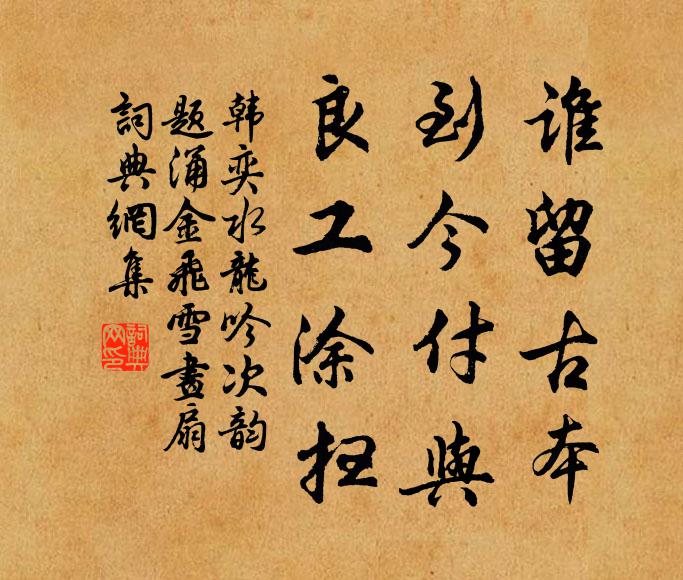 誰留古本
到今付與
良工涂抷
韩奕水龍吟次韵
题涌金飛雪畫扇
詞典網集
詞典网印